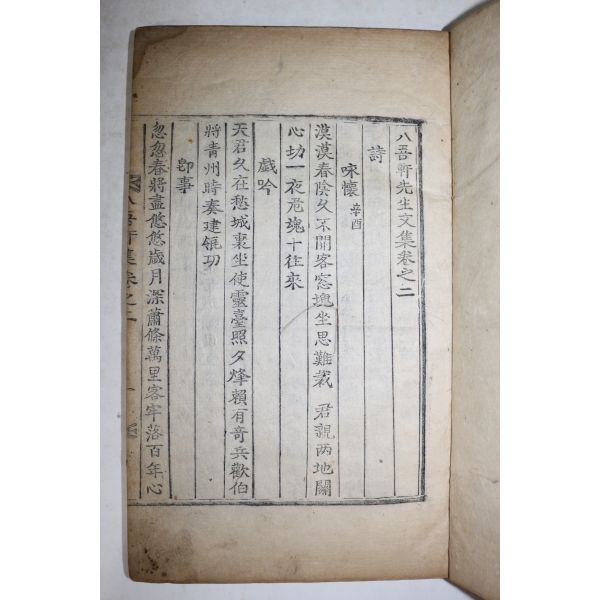 八吾軒先生文集卷之二
詩
咏懷 辛酉
漠漠春陰久不開客窓塊坐思難裁 君親两地關
心切一夜危魂十往来
戱吟
天君久在愁城裏坐使靈臺照夕烽賴有奇兵歡伯
將青州時奏建瓴功
即事
忽忽春將盡悠悠歲月深蕭條萬里客牢落百年心
八吾軒集卷之二
一